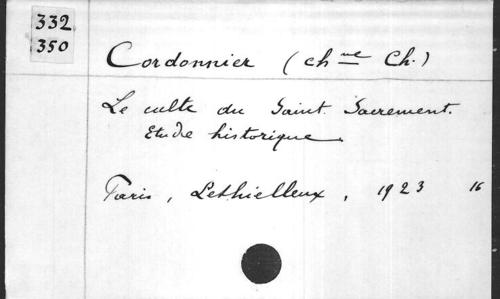 332
350
Cordonnier (chne Ch.)
Le culte du Saint Sacrement.
Etude historique.
Paris, Lethielleux, 1923 16